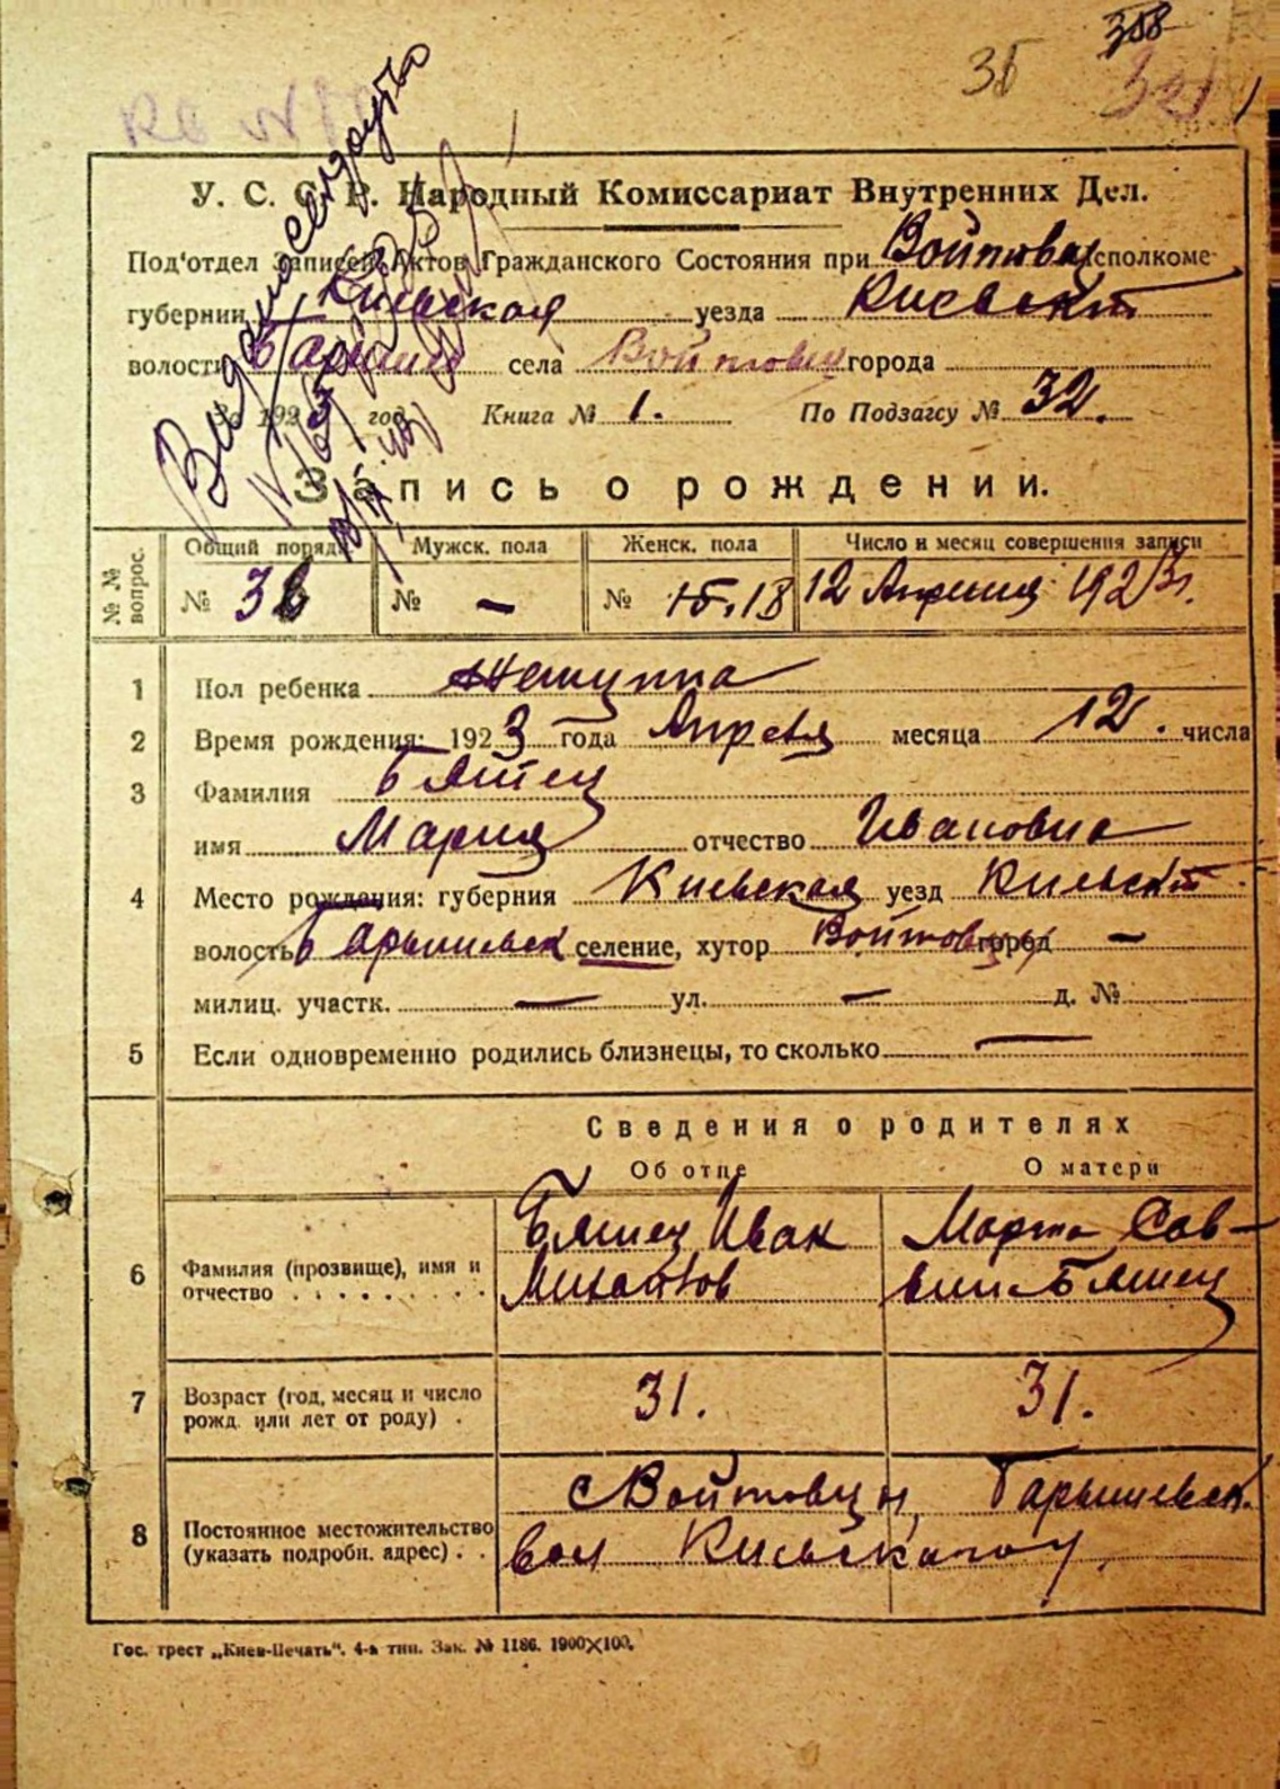 358
35 321
У. С. С. Р. Народный Комиссариат Внутренних Дел.
Под'отдел Записей Актов Гражданского Состояния при Войтовец исполкоме
губернии Киевская уезда Киевскаго
волости Барышев села Войтовец города
За 1923 год Книга № 1. По Подзагсу № 32.
Запись о рождении.
№ № вопрос. Общий поряд. Мужск. пола Женск. пола Число и месяц совершения записи
№ 36 № — № 15. 18 12 Апреля 1923 г.
1 Пол ребенка
2 Время рождения: 1923 года Апреля месяца 12. числа
3 Фамилия Бяшец
имя Мария отчество Ивановна
4 Место рождения: губерния Киевская уезд Киевск
волость Барышевск селение, хутор Войтовцы город —
милиц. участк. — ул. — д. №
5 Если одновременно родились близнецы, то сколько —
Сведения о родителях
Об отце О матери
6 Фамилия (прозвище), имя и отчество Бяшец Иван Михайлов Марта Сав- Бяшец
7 Возраст (год, месяц и число рожд. или лет от роду) 31. 31.
8 Постоянное местожительство (указать подробн. адрес) с Войтовцы, Барышевск. вол Киевск
Гос. трест „Киев-Печать". 4-а тип. Зак. № 1186. 1900×100.